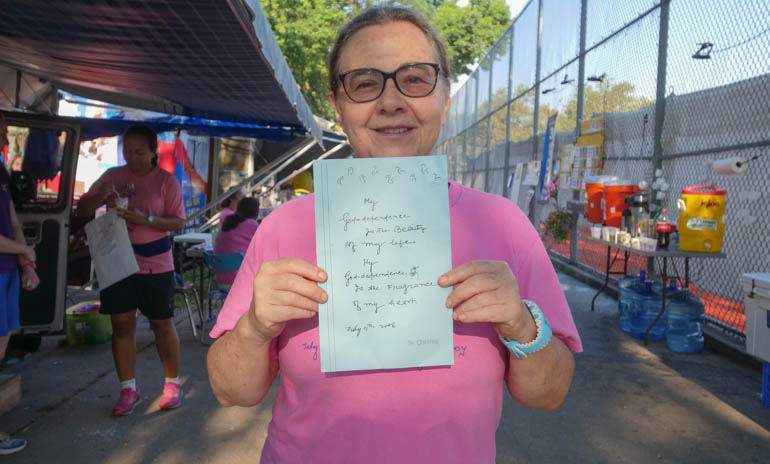 My
God-dependence
Is the Beauty
Of my life.
My
God-dependence
Is the Fragrance
Of my heart.
Sri Chinmoy
IGLOO